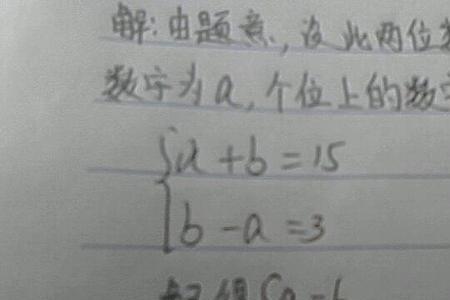 解:由题意,设此两位
数字为a,个位上的数字
{a+b=15
b-a=3
解得{a=6